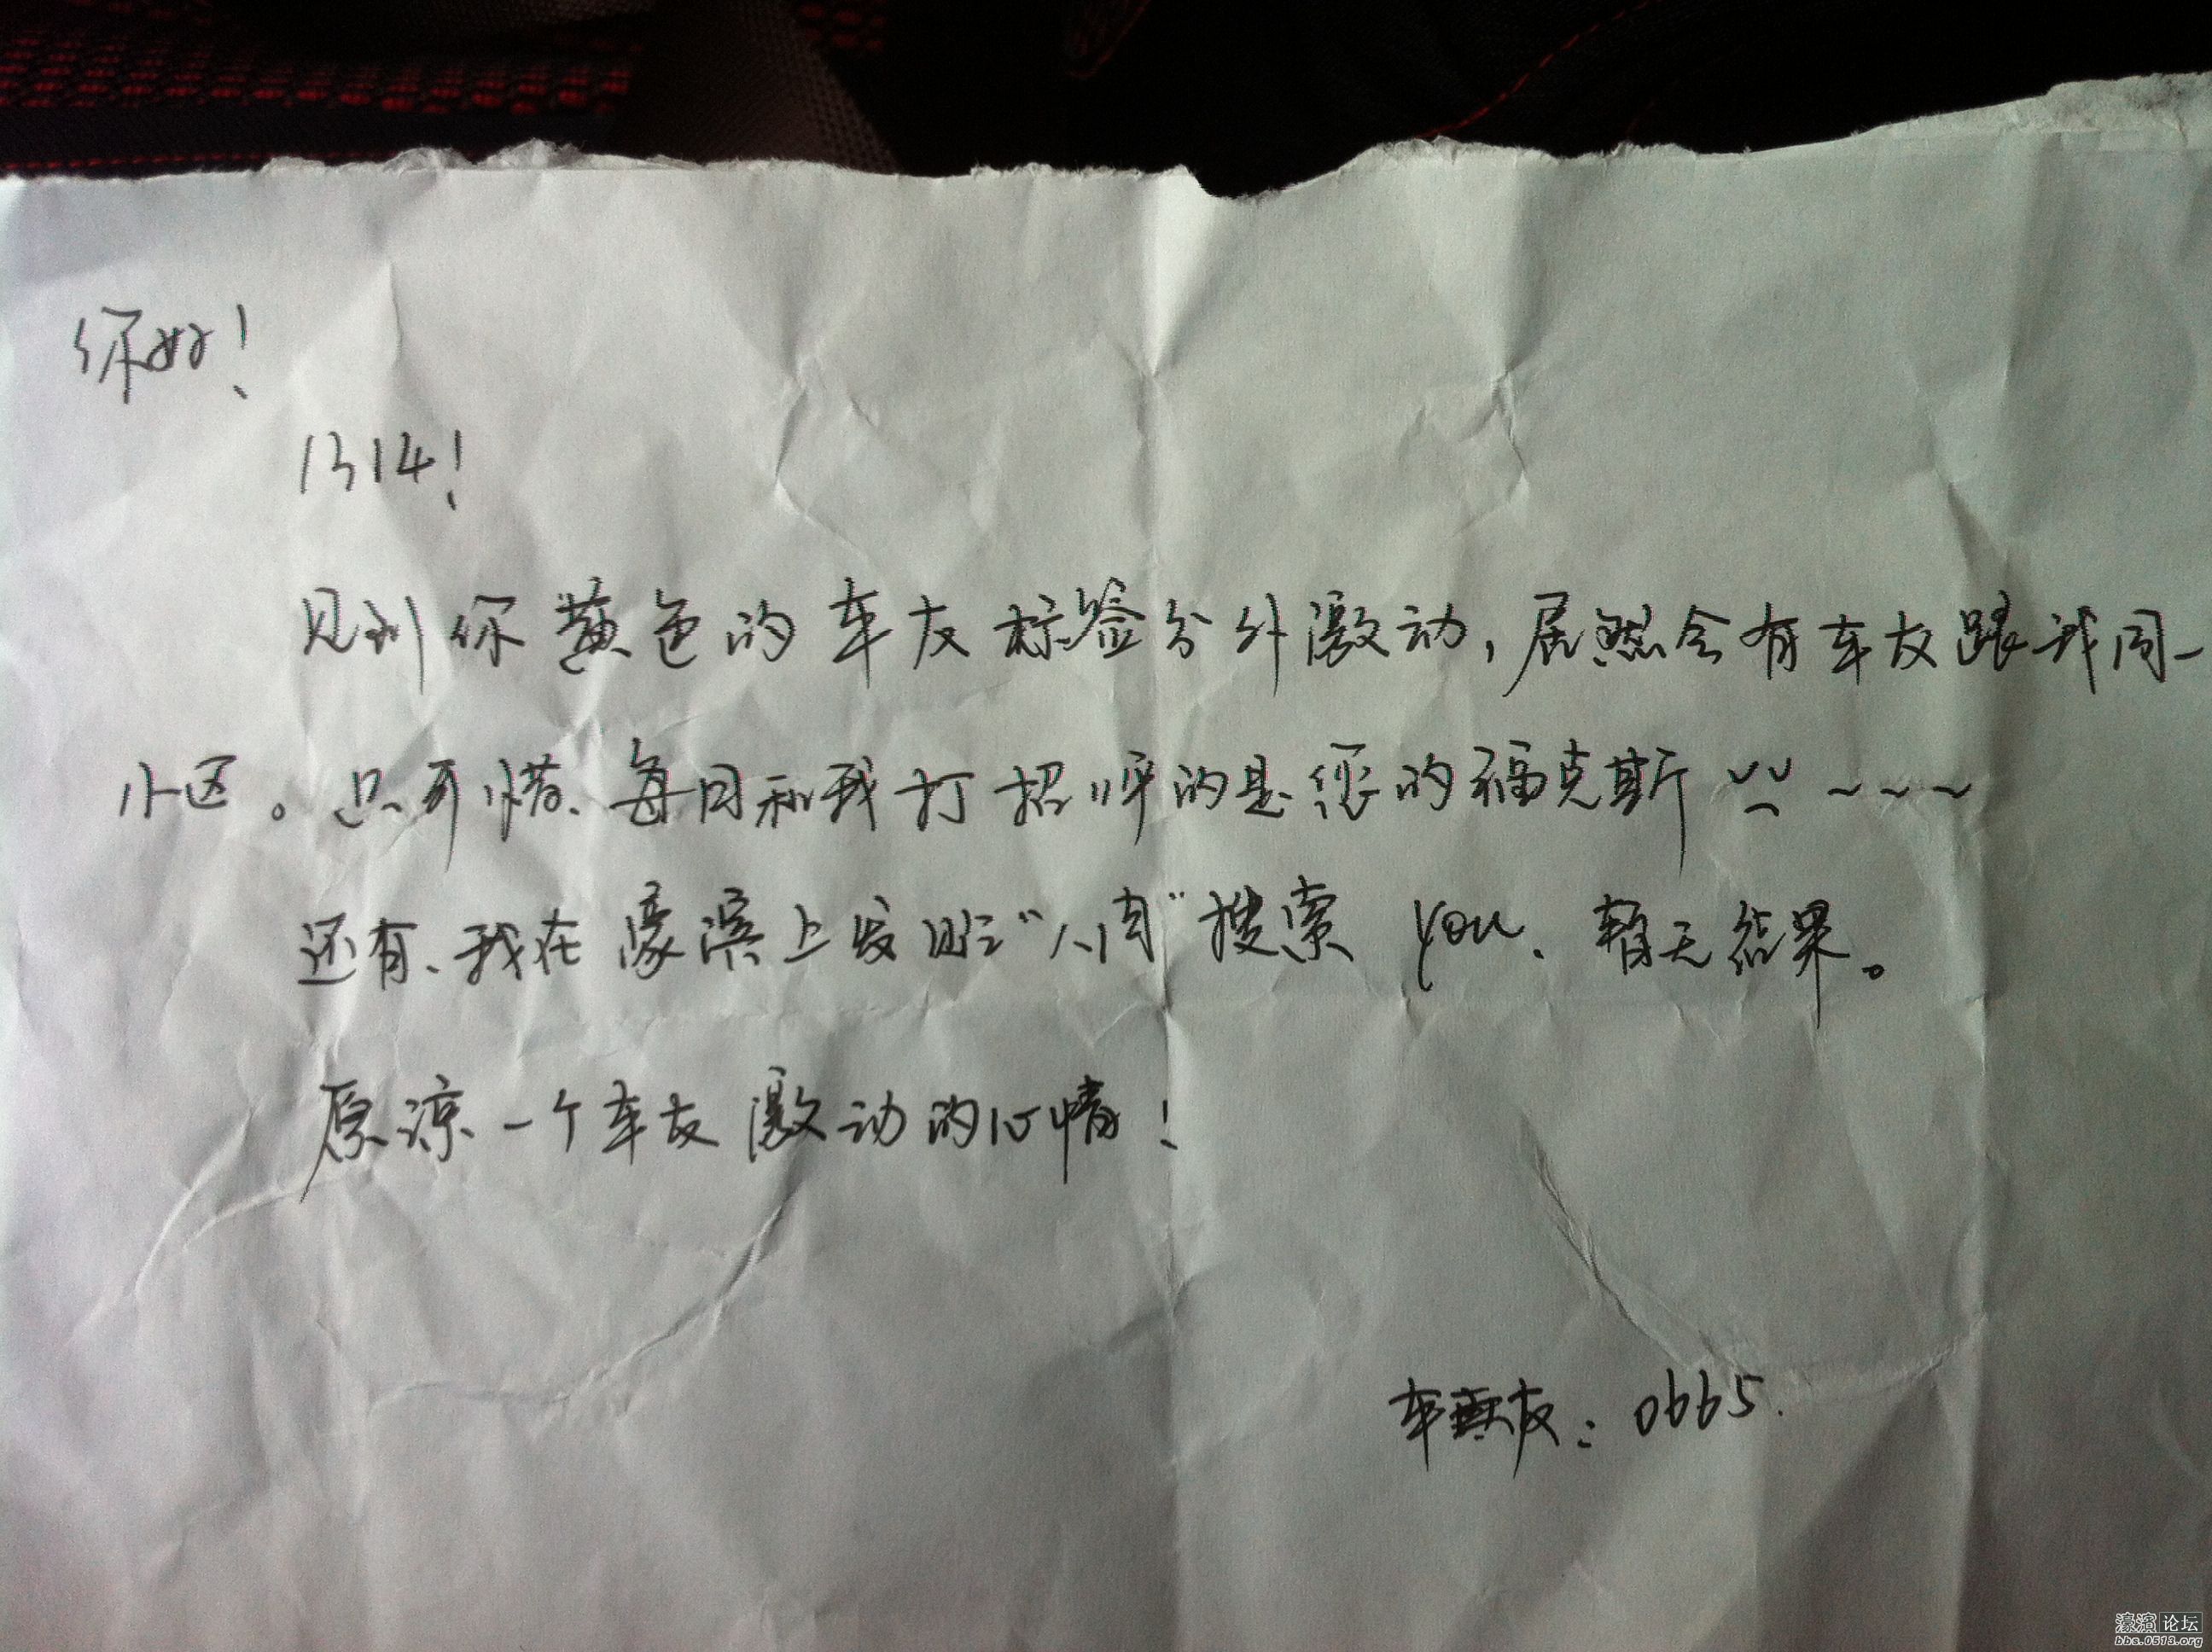 你好！
1314！
见到你黄色的车友标签分外激动，居然会有车友跟我同一
小区。只可惜、每日和我打招呼的是您的福克斯~~~
还有、我在濠滨上发帖"人肉"搜索 you. 暂无结果。
原谅一个车友激动的心情！
车友：0665.
濠滨论坛
bbs.0513.org